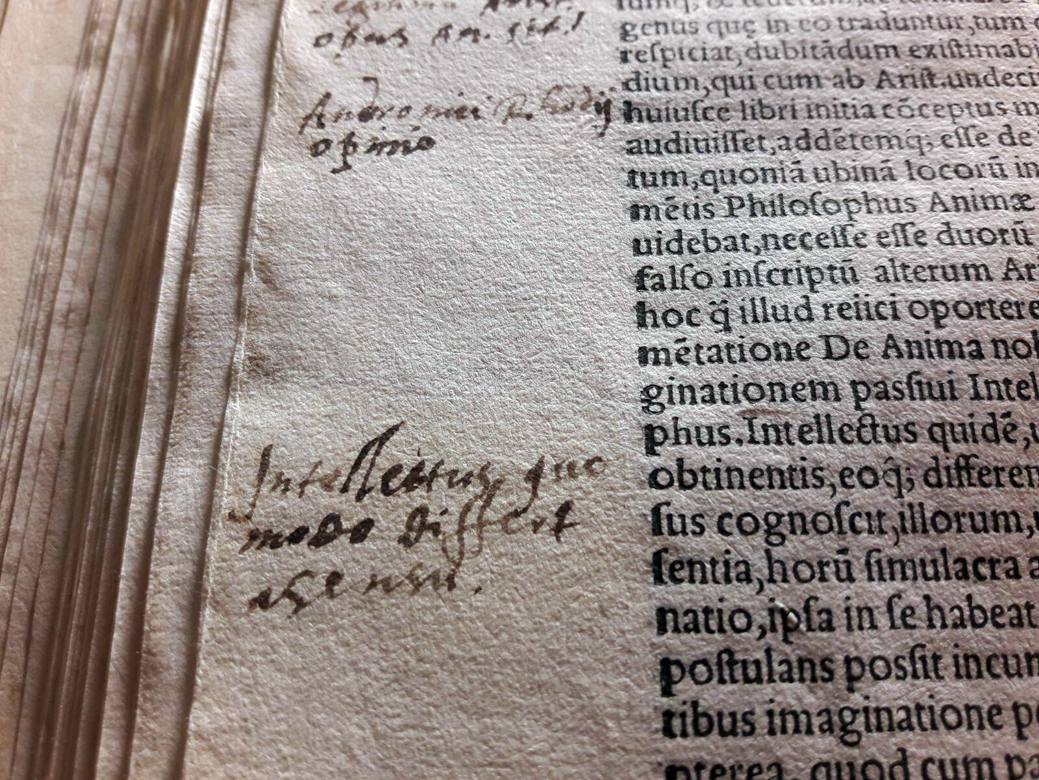 opus an. sit!
Andronici Rhodij
opinio
Intellectus quo
modo differt
a sensu.
genus quę in eo traduntur, tum
reſpiciat, dubitādum exiſtimabi
dium, qui cum ab Ariſt. undeci
huiuſce libri initia cōceptus m
audiuiſſet, addētemq́; eſſe de
tum, quoniā ubinā locorū in
mētis Philoſophus Animæ
uidebat, neceſſe eſſe duorū
falſo inſcriptū alterum Ar
hoc q̃ illud reiici oportere
mētatione De Anima nob
ginationem paſſiui Intel
phus. Intellectus quidē, u
obtinentis, eoq́; differen
ſus cognoſcit, illorum, u
ſentia, horū ſimulacra a
natio, ipſa in ſe habeat
poſtulans poſſit incur
tibus imaginatione p
pterea, quod cum pa